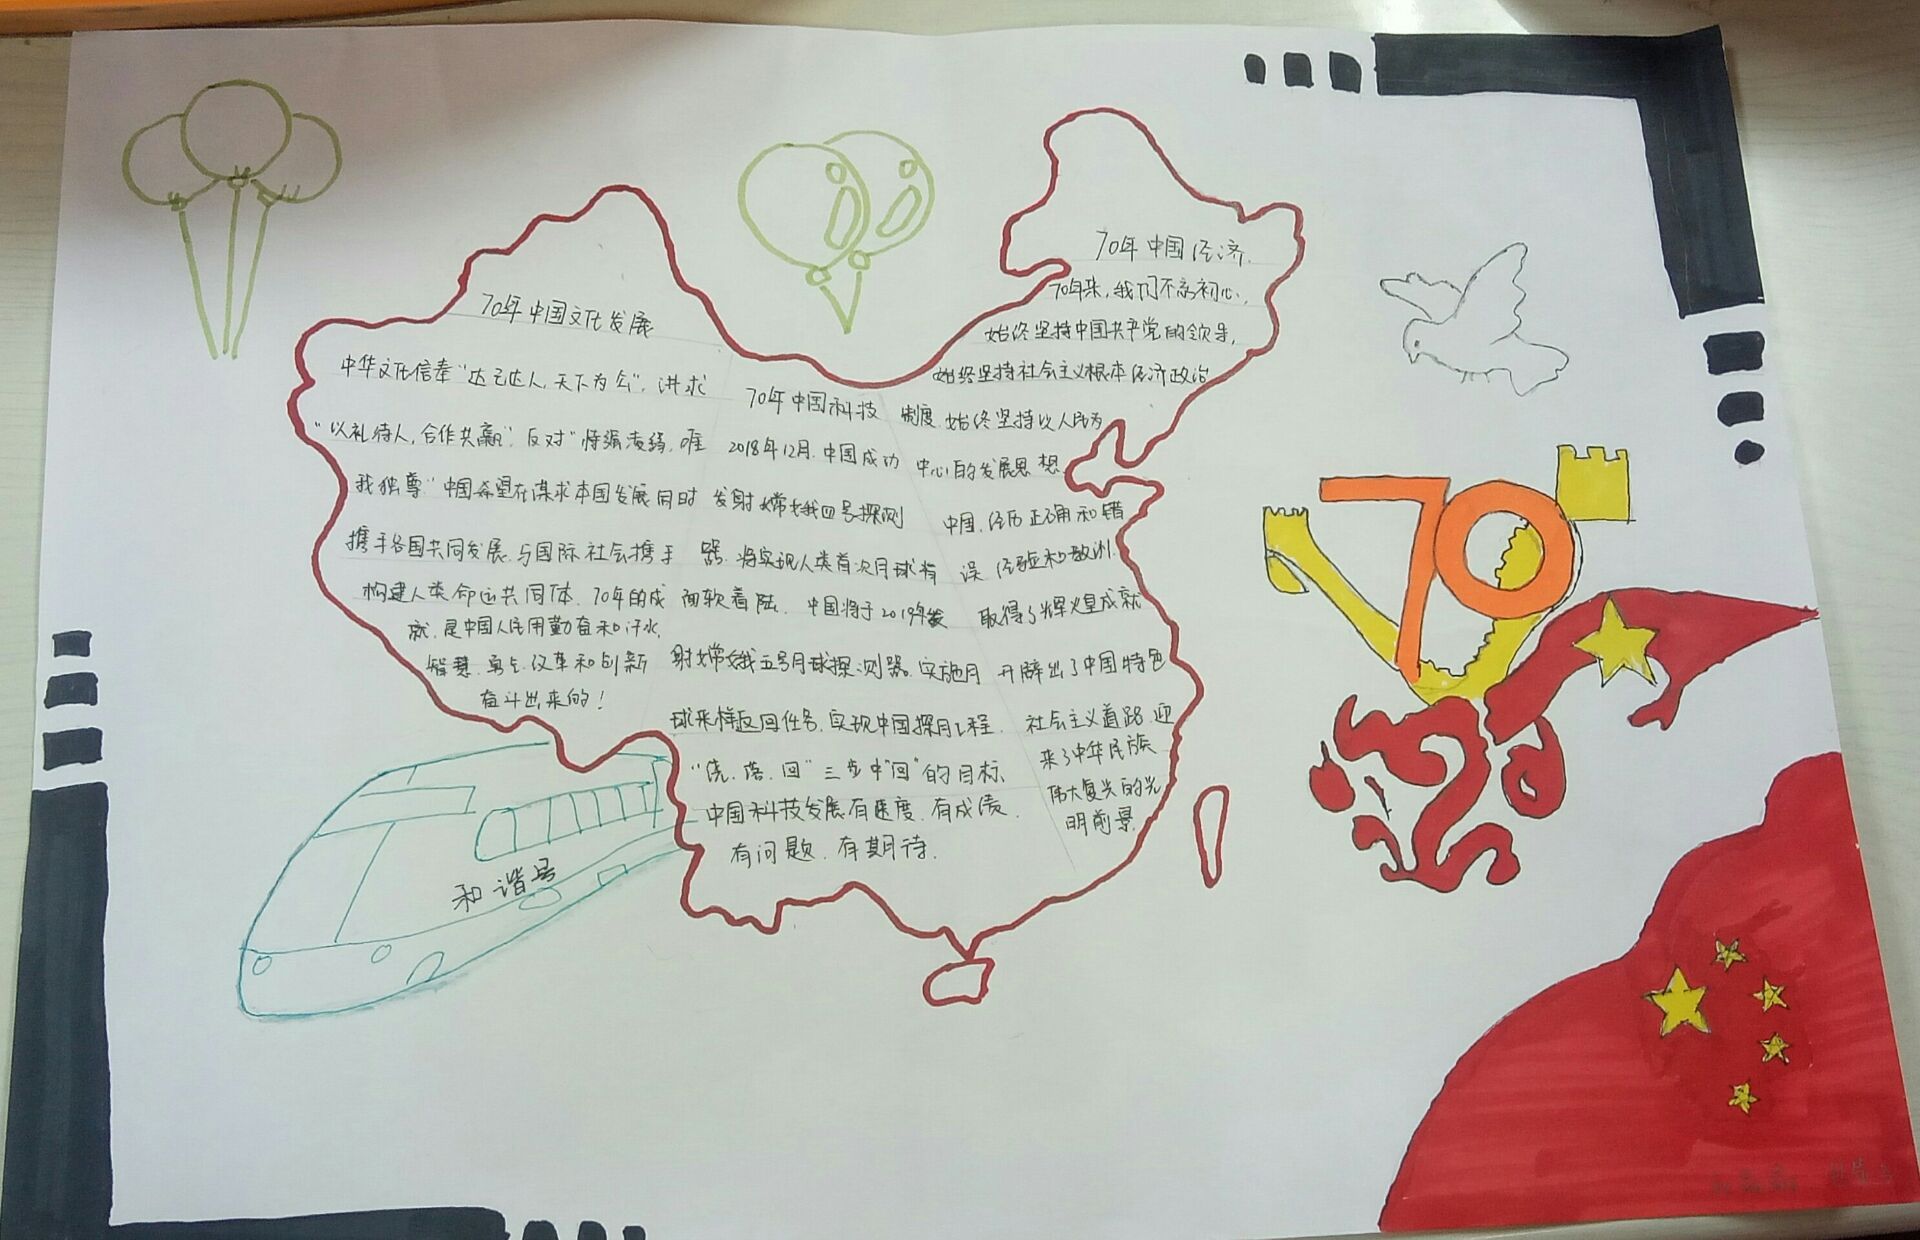 70年中国文化发展
中华文化信奉"达己达人,天下为公",讲求
"以礼待人,合作共赢",反对"恃强凌弱,唯
我独尊"中国希望在谋求本国发展同时
携手各国共同发展,与国际社会携手
构建人类命运共同体,70年的成
就,是中国人民用勤奋和汗水,
智慧,勇气,改革和创新
奋斗出来的!
70年中国科技
2018年12月,中国成功
发射嫦娥四号探测
器,将实现人类首次月球背
面软着陆,中国将于2019年发
射嫦娥五号月球探测器,实施月
球采样返回任务,实现中国探月工程
"绕、落、回"三步中"回"的目标,
中国科技发展有速度,有成绩,
有问题,有期待.
70年中国经济
70年来,我们不离初心,
始终坚持中国共产党的领导,
始终坚持社会主义根本经济政治
制度,始终坚持以人民为
中心的发展思想
中国,经历正确和错
误 经验和教训.
取得了辉煌成就
开辟出了中国特色
社会主义道路,迎
来了中华民族
伟大复兴的光
明前景
70
和谐号